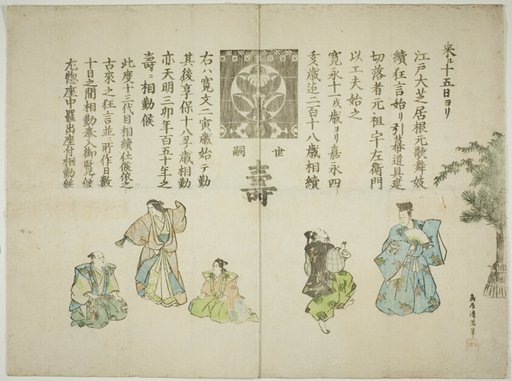 来ル十五日ヨリ
江戸大芝居根元歌舞妓
續狂言始リ引幕道具建
切落者元祖宇左衛門
以工夫始之
寛永十一戌歳ヨリ嘉永四
亥歳迄二百十八歳相續
世嗣
壽
右ハ寛文二寅歳始テ勤
其後享保十八丑歳相勤
亦天明三卯年百五十年之
壽ニ相勤候
此度十三代目相續仕候依之
古來之狂言並ニ所作日數
十日之間相勤奉入御覧候
尤惣座中罷出座付相勤候
鳥居清筆